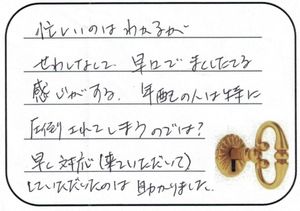 忙しいのはわかるが
せわしなして、早口でまくしたてる
感じがする。年配の人は特に
圧倒されてしまうのでは？
早く対応（来ていただいて）
していただいたのは助かりました。